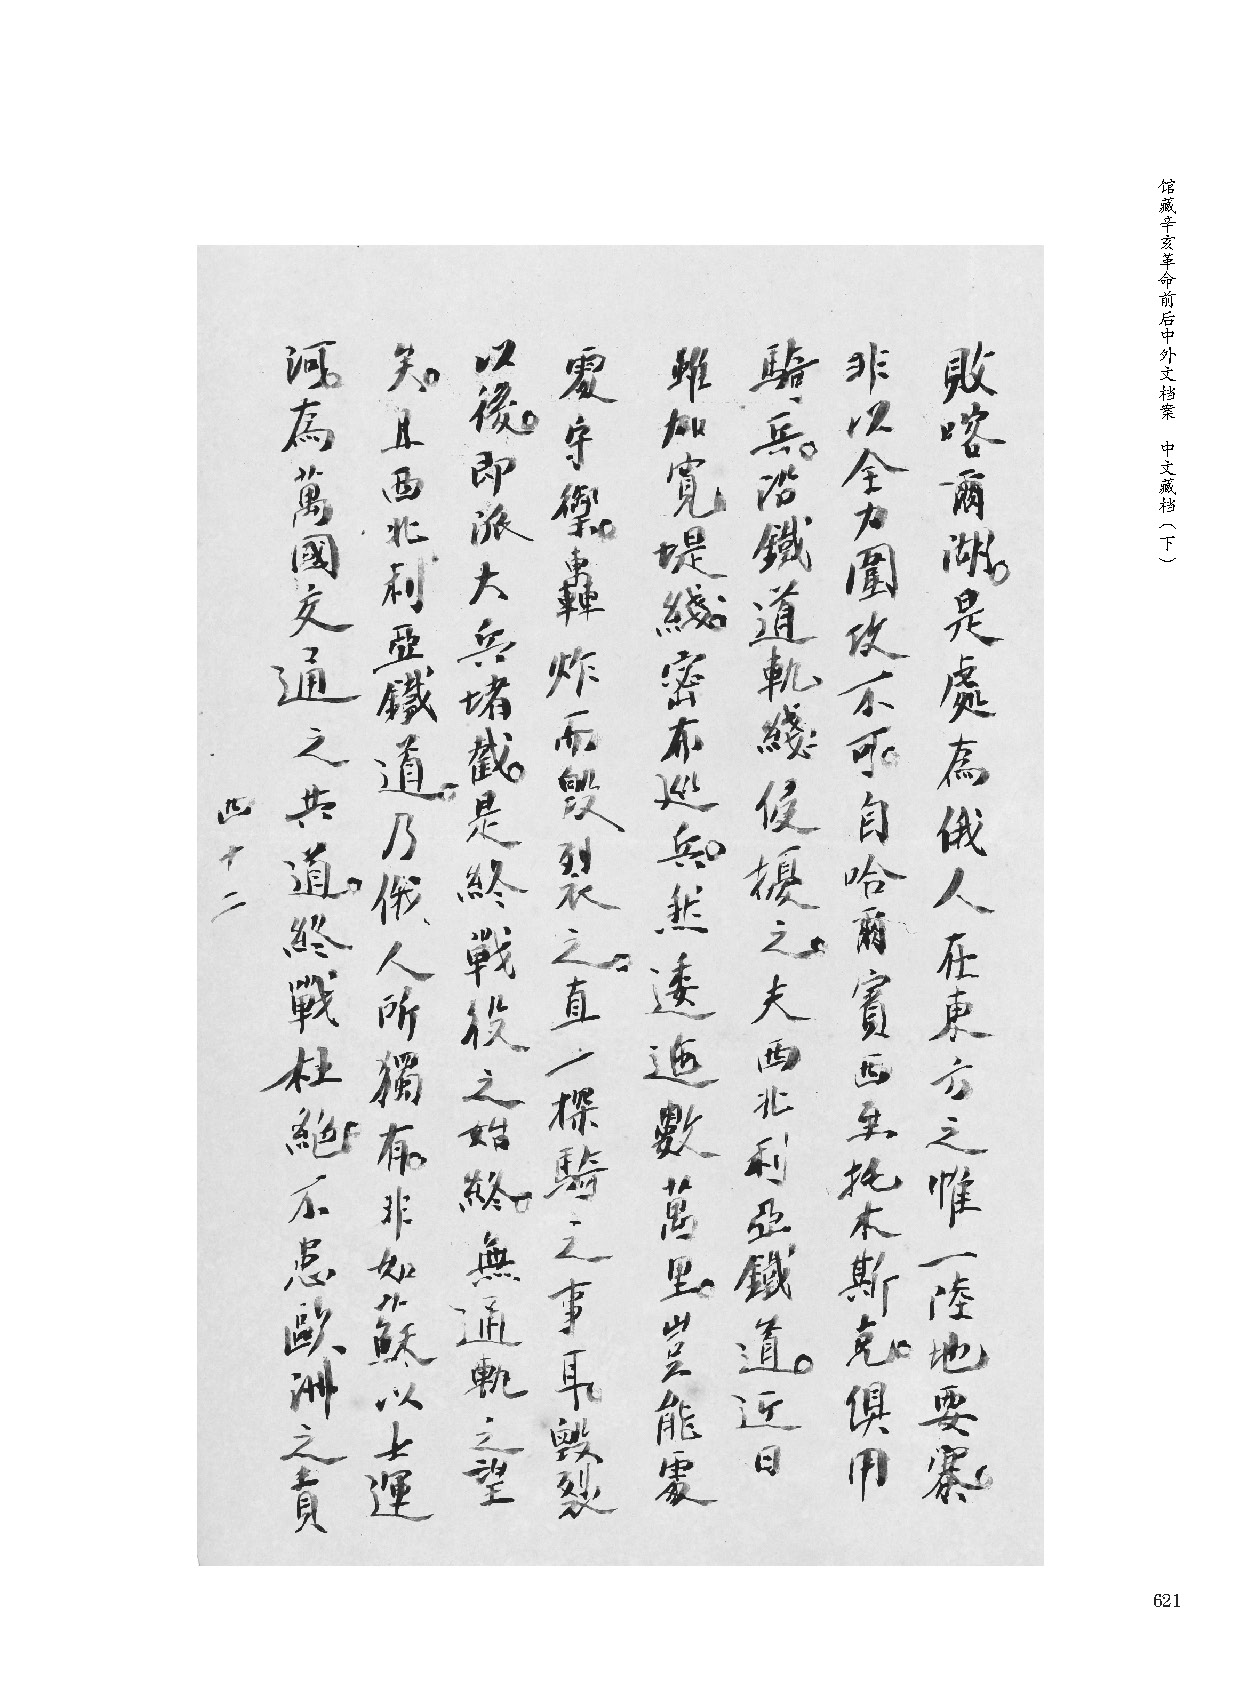 馆藏辛亥革命前后中外文档案 中文藏档（下）
敗喀爾湖。是處為俄人在東方之惟一陸地要寨。
非以全力圍攻不可。自哈爾賓西至托木斯克。俱用
騎兵。沿鐵道軌綫侵擾之。夫西北利亞鐵道。近日
雖加寬堤綫。密布巡兵。然逶迤數萬里。豈能處
處守禦。轟炸而毀裂之。直一探騎之事耳。毀裂
以後。即派大兵堵截。是終戰役之始終。無通軌之望
矣。且西北利亞鐵道。乃俄人所獨有。非如蘇以士運
河。為萬國交通之共道。終戰杜絕。不患歐洲之責
四十二
621